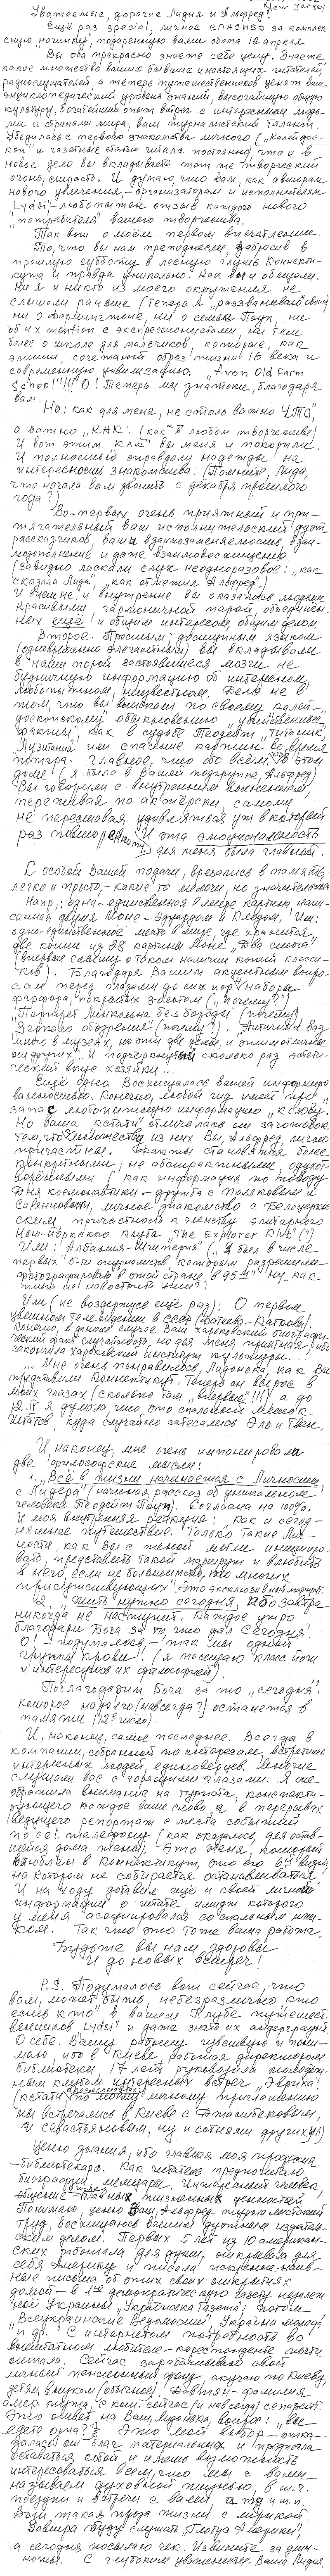 New Jersey
Уважаемые, дорогие Лидия и Альфред!
Ещё раз special, личное спасибо за комплек-
сную "начинку", подаренную вами обета 12 апреля
Вы оба прекрасно знаете себе цену. Знаете
какое множество ваших бывших и настоящих читателей,
радиослушателей, а теперь путешественников ценят ваш
энциклопедический уровень знаний, высочайшую общую
культуру, богатейший опыт встреч с интересными людь-
ми и странами мира, ваш журналистский талант.
Убедилась с первого знакомства личного ("Калейдос-
коп" и газетные статьи читала постоянно), что и в
новое дело вы вкладываете тот же творческий
огонь, страсть. И думаю, что вам, как авторам
нового увлечения, – организаторам и исполнителям
"Lydsi", – любопытен отзыв каждого нового
"потребителя" вашего творчества.
Так вот о моём первом впечатлении.
То, что вы нам преподнесли, забросив в
прошлую субботу в лесную глушь Коннекти-
кута и правда уникально. Как вы и обещали.
Ни я и никто из моего окружения не
слышали раньше (теперь я "раззваниваю" своим)
ни о Фармингтоне, ни о семье Поуп, ни
об их mention с экспрессионистами, ни тем
более о школе для мальчиков, которые, как
эмиши, сочетают образ жизни 16 века и
современную цивилизацию. "Avon Old Farm
School"!!! О! Теперь мы знатоки, благодаря
вам.
Но: как для меня, не столь важно "ЧТО",
а важно "КАК". (как и в любом творчестве)
И вот этим "КАК" вы меня и покорили.
И полностью оправдали надежды на
интересность знакомства. (Помните, Лида,
что начала вам звонить с декабря прошлого
года?)
Во-первых, очень приятный и при-
тягательный ваш исполнительский дуэт
рассказчиков, ваши взаимозаменяемость, взаи-
модополнение и даже взаимовосхищение.
(Завидно ласкали слух неоднократное: "как
сказала Лида", "как отметил Альфред".)
И внешне, и внутренне вы оказались людьми
красивыми гармоничной парой, объединён-
ных ещё и общим интересом, общим делом.
Второе. Простым, доступным языком
(одновременно элегантным) вы вкладывали
в наши порой застоявшиеся мозги не
будничную информацию об интересном,
любопытном, неизвестном. Дело не в
том, что вы выискали по своему калей-
доскопскому обыкновению "удивительные
факты", как в судьбе Теодейт "Титаник",
"Лузитания" или спасение картин во время
пожара. Главное, что обо всём в этом
доме (я была в вашей подгруппе, Альфред)
Вы говорили с внутренним волнением,
переживая по актёрски, самому
не переставая удивляться уж в который
раз повторенному. И эта эмоциональность
для меня была главной.
С особой вашей подачи, врезались в память
легко и просто, – какие-то мелочи, но значительные
Напр.: одна-единственная в мире картина, напи-
санная двумя Моне – Эдуардом и Клодом. Или:
одно-единственное место в мире, где хранится
две копии из 28 картин Моне "Два стога"
(впервые слышу о таком наличии копий класси-
ков). Благодаря Вашим акцентным вопро-
сам перед глазами до сих пор "Наборы
фарфора, покрытых золотом ("почему?")
"Портрет Линкольна без бороды" (почему)
"Зеркало обозрения" (почему?). "Античных ваз
много в музеях, но эти две ценны, и они отличны
от других". И подчеркнутый сколько раз эстети-
ческий вкус хозяйки...
Ещё одно. Восхищалась вашей информиро-
ванностью. Конечно, любой гид имеет про
запас любопытную информацию "к слову".
Но ваша "кстати" отличалась от заготовок
тем, что ко множеству из них Вы, Альфред, лично
причастны. Факты становятся более
конкретными, не абстрактными, одухот-
ворёнными, как информация по поводу
Дня космонавтики – дружба с Поляковым и
Савиновым, личное знакомство с Белоцерков-
ским, причастность к членству элитарного
Нью-Йоркского клуба "The Explorer Club" (!)
Или: "Албания – империя" ("я был в числе
первых 5-ти журналистов, которым разрешили
фотографировать в этой стране в 95м". Ну как
тут не навострить ушки?
Или (не воздержусь ещё раз): О первом
цветном телевидении в СССР (Фатеево-Каткова).
Конечно, в данном случае Ваш харьковский биографи-
ческий факт случайность, но для меня приятная, ибо
закончила Харьковский институт культуры...
...Мне очень понравилось, Лидочка, как Вы
представили Коннектикут. Теперь он вырос в
моих глазах (сколько там "впервые"!!!) а до
12.IV я думала, что это спальный мешок
Штатов, куда случайно затесались Эль и Твен.
И наконец, мне очень импонировали
две философские мысли:
1. "Всё в жизни начинается с Личности,
с Лидера" (начиная рассказ об уникальном
человеке Теодейт Поуп). Согласна на 100%.
И моя внутренняя реакция: "как и сегод-
няшнее путешествие". Только такие Лич-
ности, как вы с женой могли иницииро-
вать, представить такой маршрут и влюбить
в него, если не большинство, то многих
присутствующих. Это эксклюзивный маршрут.
2. "Жить нужно сегодня, ибо завтра
никогда не наступит. Каждое утро
благодари Бога за то, что дал сегодня".
О! – подумалось – "так мы одной
группы крови"!! (я посещаю класс йоги
и интересуюсь их философией).
Поблагодарим Бога за то "сегодня",
которое надолго (навсегда?) останется в
памяти. (12е число).
И, наконец, самое последнее. Всегда в
компании, собранной по интересам, встретишь
интересных людей, единоверцев. Многие
слушали вас с горящими глазами. Я же
обратила внимание на туриста, конспекти-
рующего каждое ваше слово, а в перерывах
ведущего репортаж с места событий
по cel. телефону (как оказалось, для остав-
шейся дома жены). Это Женя, который
влюблён в Коннектикут, это его 6й визит,
на котором не собирается останавливаться.
И на ходу добавил ещё и своей личной
информации о штате, имидж которого
у меня ассоциировался со спальным меш-
ком. Так что это тоже ваша работа.
Будьте вы нам здоровы
И до новых встреч!
P.S. Подумалось вот сейчас, что
вам, может быть, небезразлично кто
есть кто в вашем клубе путешест-
венников "Lydsi" и даже знать их андеграунд.
О себе. Вашу работу чувствую и пони-
маю, ибо в Киеве работала директором
библиотеки, 17 лет руководила молодёж-
ным клубом интересных встреч "Эврика"
(Кстати, по моему личному приглашению
мы встречались в Киеве с Джанибековым,
и Севастьяновым, ну и сотнями других!!!)
Ценю знания, ибо главная моя профессия
– библиотекарь. Как читатель предпочитаю
биографии, мемуары. Интересует человек,
общение, жизненные ценности.
Понимаю, ценю Ваш, Альфред, журналистский
труд, восхищаюсь вашим духовным издатель-
ским делом. Первых 5 лет из 10 американ-
ских работала для души, открывала для
себя Америку и писала искренне-наив-
ные письма об этих своих открытиях
домой – в 1ую демократическую газету независи-
мой Украины "Українська Газета", потом
"Всеукраинские Ведомости", "Україна молода"
и др. С интернетом потребность во
внештатном любителе-корреспонденте почти
отпала. Сейчас зарабатываю свой
личный пенсионный фонд, скучаю по Киеву,
детям, внукам (обычное). Давтян – фамилия
амер. мужа, с кот. сейчас (и навсегда) сепарейт.
Это ответ на Ваш, Лидочка, вопрос: "вы
едете одна?". Это мой выбор – отка-
залась от благ материальных и предпочла
оставаться собой, и иметь возможность
интересоваться всем, что мы с вами
называем духовной жизнью, в т.ч.
поездки и встречи с вами, и тд и т.п.
Вот такая проза жизни с лирикой.
Завтра буду слушать "Голос Америки",
а сегодня посылаю чек. Извините за длин-
ноты. С глубоким уважением. Ваша Лидия